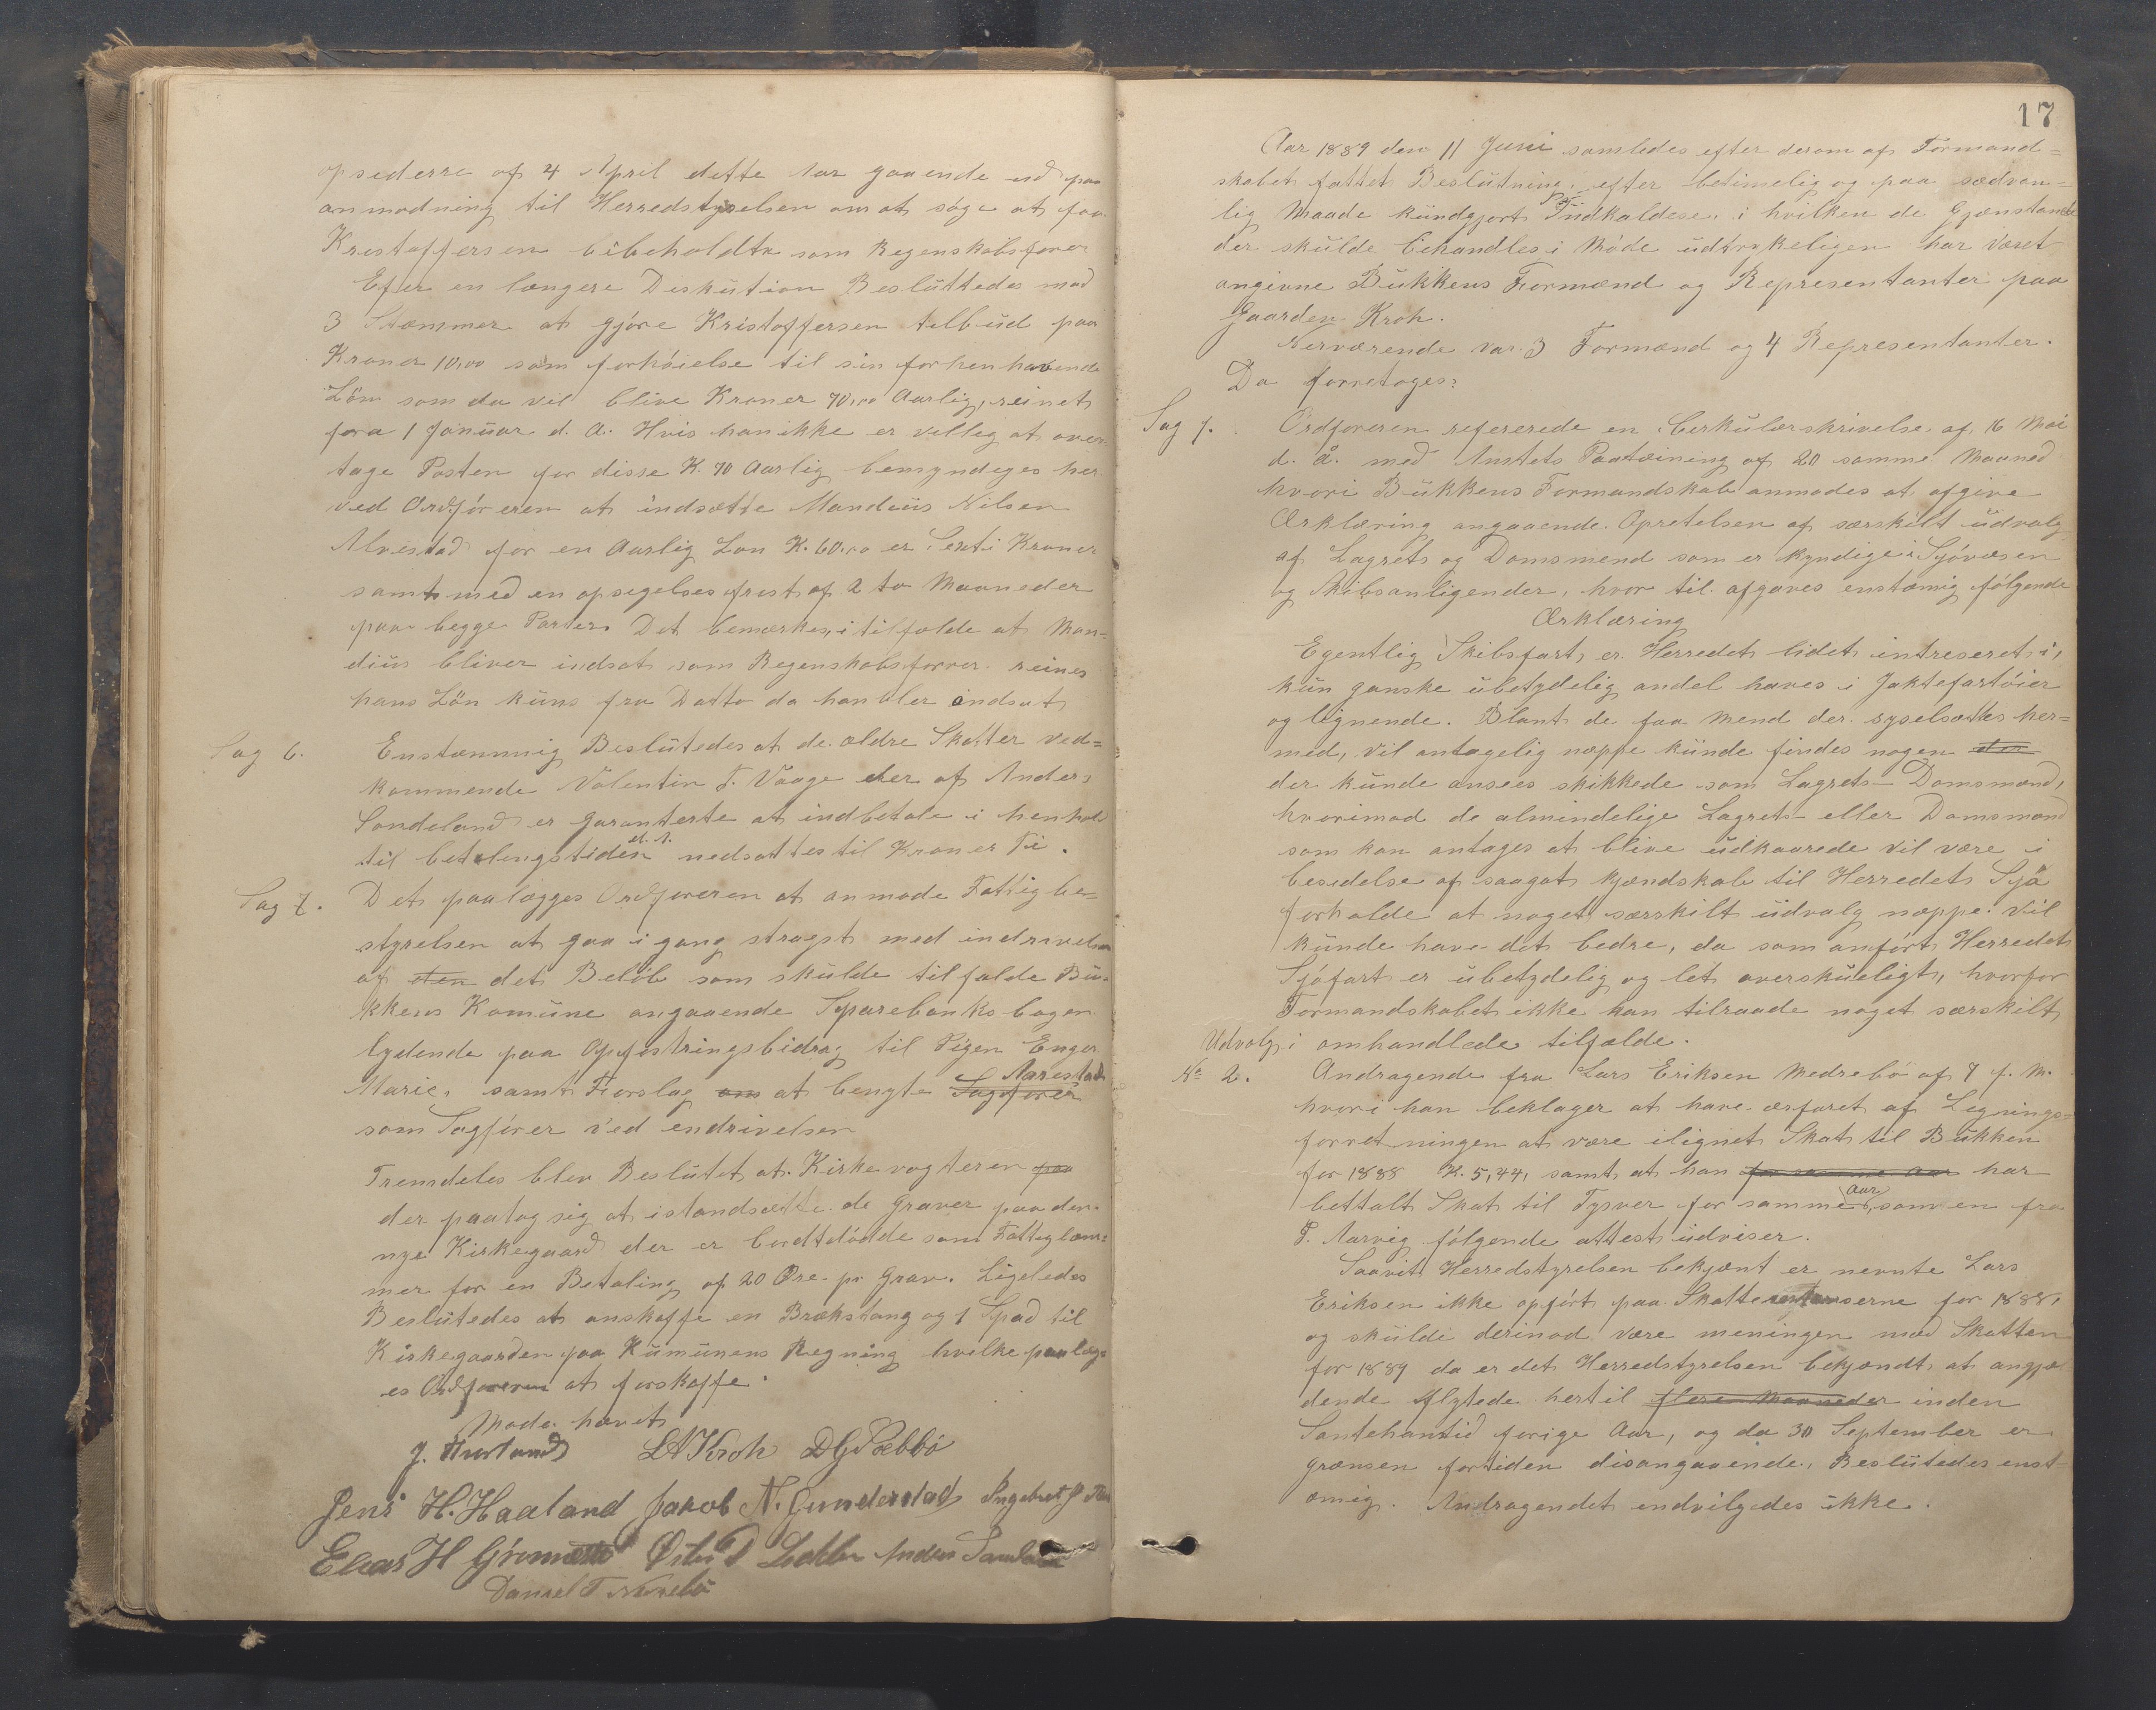 opsiderre af 4 April dette Aar gaaende ud paa
anmodning til Herredstyrelsen om at søge at faa
Kristoffersen bibeholdt som Regenskabsfører
Efter en længere Diskution Besluttedes med
3 Stæmmer at gjøre Kristoffersen tilbud paa
Kroner 10,00 som forhøielse til sin forhenhavende
Løn som da vil blive Kroner 70,00 Aarlig, reinet
fra 1 Januar d. A. Hvis han ikke er velleg at over
tage Posten for disse K. 70 Aarlig bemyndeges her
ved Ordføreren at indsætte Mandeus Nilsen
Alvestad for en Aarlig Løn K. 60,00 er Sexti Kroner
samt med en opsegelses frist af 2 to Maaneder
paa begge Parter. Det bemærkes, i tilfælde at Man-
dius bliver indsat som Regenskabsfører reines
hans Løn kuns fra Datto da han bler indsat
Sag 6. Enstæmmig Beslutedes at de ældre Skatter ved=
kommende Valentin T. Vaage der af Anders
Sandeland er garanterte at indbetale i henhold
til betalingstiden nedsattes til Kroner Ti.
Sag 7. Det paalægges Ordføreren at anmode Fattigbe=
styrelsen at gaa i gang stragst med indrivelsen
af den det Beløb som skulde tilfalde Bu-
kkens Komune angaaende Sparebanks bogen
lydende paa Opfostringsbidrag til Pigen Enger
Marie, samt Forslag om at bengte Sagfører Aarestad
som Sagfører ved endrivelsen
Fremdeles blev Beslutet at Kirkevogteren paa
der paatog sig at istandsætte de Graver paa den
nye Kirkegaard der er bordtdødde som Fattiglem=
mer for en Betaling af 20 Øre pr Grav. Ligeledes
Beslutedes at anskaffe en Brækstang og 1 Spad til
Kirkegaarden paa Kumunens Regning hvilke paalæg-
es Ordføreren at forskaffe.
Møde hævet
LA Kroh D G Sæbbø
Jens H. Haaland Jakob N. Gunderstad Ingebret
Elias H Grønnestad Anders Sandeland
Daniel T
17
Aar 1889 den 11 Juni samledes efter derom af Formand=
skabet fattet Beslutning, efter betimelig og paa sædvan=
lig Maade kundgjort Indkaldese, i hvilken de Gjænstande
der skulde behandles i Møde udtrykeligen har været
angivne Bukkens Formænd og Representanter paa
Gaarden Kroh.
Nerværende var 3 Formænd og 4 Representanter.
Da forretoges:
Sag 1. Ordføreren refererede en Cerkulærskrivelse af 16 Mai
d. å. med Amtets Paateining af 20 samme Maaned
hvori Bukkens Formandskab anmodes at afgive
Ærklæring angaaende Opretelsen af særskilt udvalg
af Lagrets og Domsmend som er kyndige i Sjøvæsen
og Skibsanligender, hvor til afgaves enstæmig følgende
Ærklæring
Egentlig Skibsfart er Herredet lidet intreseret i,
kun ganske ubetydelig andel haves i Jaktefartøier
og lignende. Blant de faa Mend der syselsættes her=
med, vil antagelig næppe kunde findes nogen der
der kunde ansees skikkede som Lagrets-Domsmænd,
hvorimod de almindelige Lagrets eller Domsmænd
som kan antages at blive udkaarede vil være i
besidelse af saagat kjændskab til Herredets Sjø
forholde at noget særskilt udvalg næppe vil
kunde have det bedre, da som anført Herredets
Sjøfart er ubetydelig og let overskueligt, hvorfor
Formandskabet ikke kan tilraade noget særskilt
Udvalg i omhandlede tilfælde.
No 2. Andragende fra Lars Eriksen Medrebø af 7 f. M.
hvori han beklager at have ærfaret af Lignings=
forretningen at være ilignet Skat til Bukken
for 1888 K. 5,44, samt at han for samme Aar har
bettalt Skat til Tysver for samme Aar, som en fra
T. Aarvig følgende attest udviser.
Saavit Herredstyrelsen bekjænt er nevnte Lars
Eriksen ikke opført paa Skatterestanserne for 1888,
og skulde derimod være meningen med Skatten
for 1889 da er det Herredstyrelsen bekjændt at angjæ
dende flytede hertil flere Maaneder inden
Santehanstid forige Aar, og da 30 September er
grænsen fortiden disangaaende, Beslutedes enst
æmig. Andragendet indvilgedes ikke.